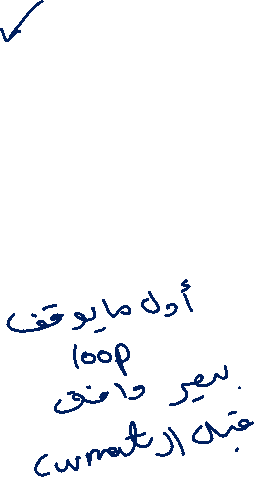 أول ما يوقف
loop
بصير واقف
قبل الـ current